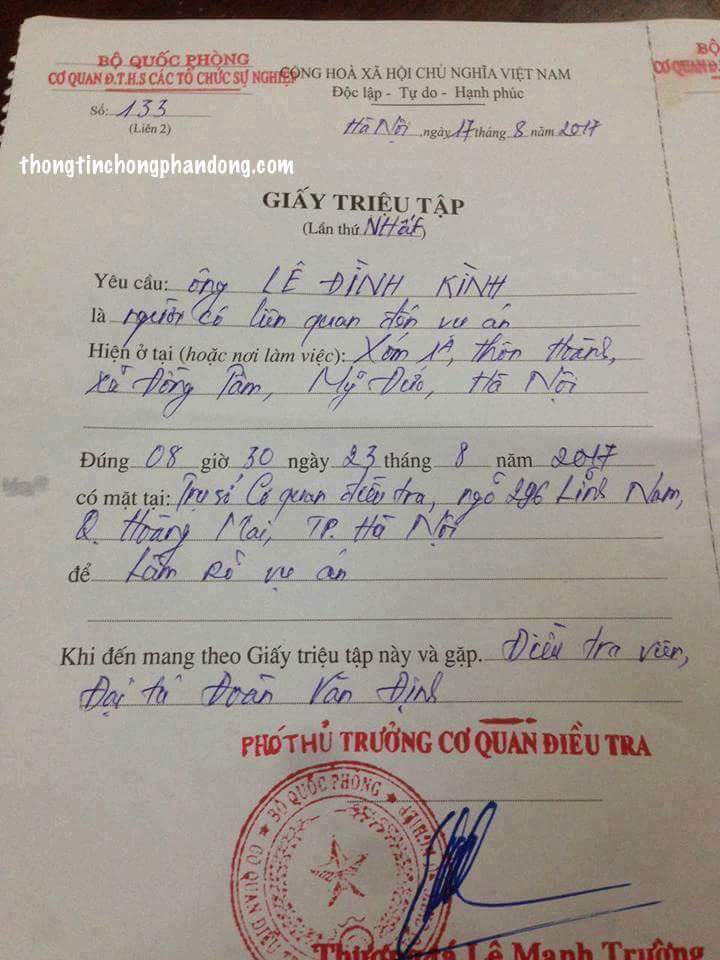 BỘ QUỐC PHÒNG
CƠ QUAN Đ.T.H.S CÁC TỔ CHỨC SỰ NGHIỆP
Số: 133
(Liên 2)
CỘNG HOÀ XÃ HỘI CHỦ NGHĨA VIỆT NAM
Độc lập - Tự do - Hạnh phúc
Hà Nội, ngày 17 tháng 8 năm 2017
BỘ
CƠ QUAN Đ
thongtinchongphandong.com
GIẤY TRIỆU TẬP
(Lần thứ NHẤt)
Yêu cầu: ông LÊ ĐÌNH KÌNH
là người có liên quan đến vụ án
Hiện ở tại (hoặc nơi làm việc): Xóm 1A, thôn Hoành,
xã Đồng Tâm, Mỹ Đức, Hà Nội
Đúng 08 giờ 30 ngày 23 tháng 8 năm 2017
có mặt tại: Trụ sở Cơ quan điều tra, ngõ 296 Lĩnh Nam,
Q. Hoàng Mai, TP. Hà Nội
để Làm rõ vụ án
Khi đến mang theo Giấy triệu tập này và gặp. Điều tra viên,
Đại tá Đoàn Văn Định
PHÓ THỦ TRƯỞNG CƠ QUAN ĐIỀU TRA
BỘ QUỐC PHÒNG
CƠ QUAN ĐIỀU TR
Thượng tá Lê Mạnh Trường